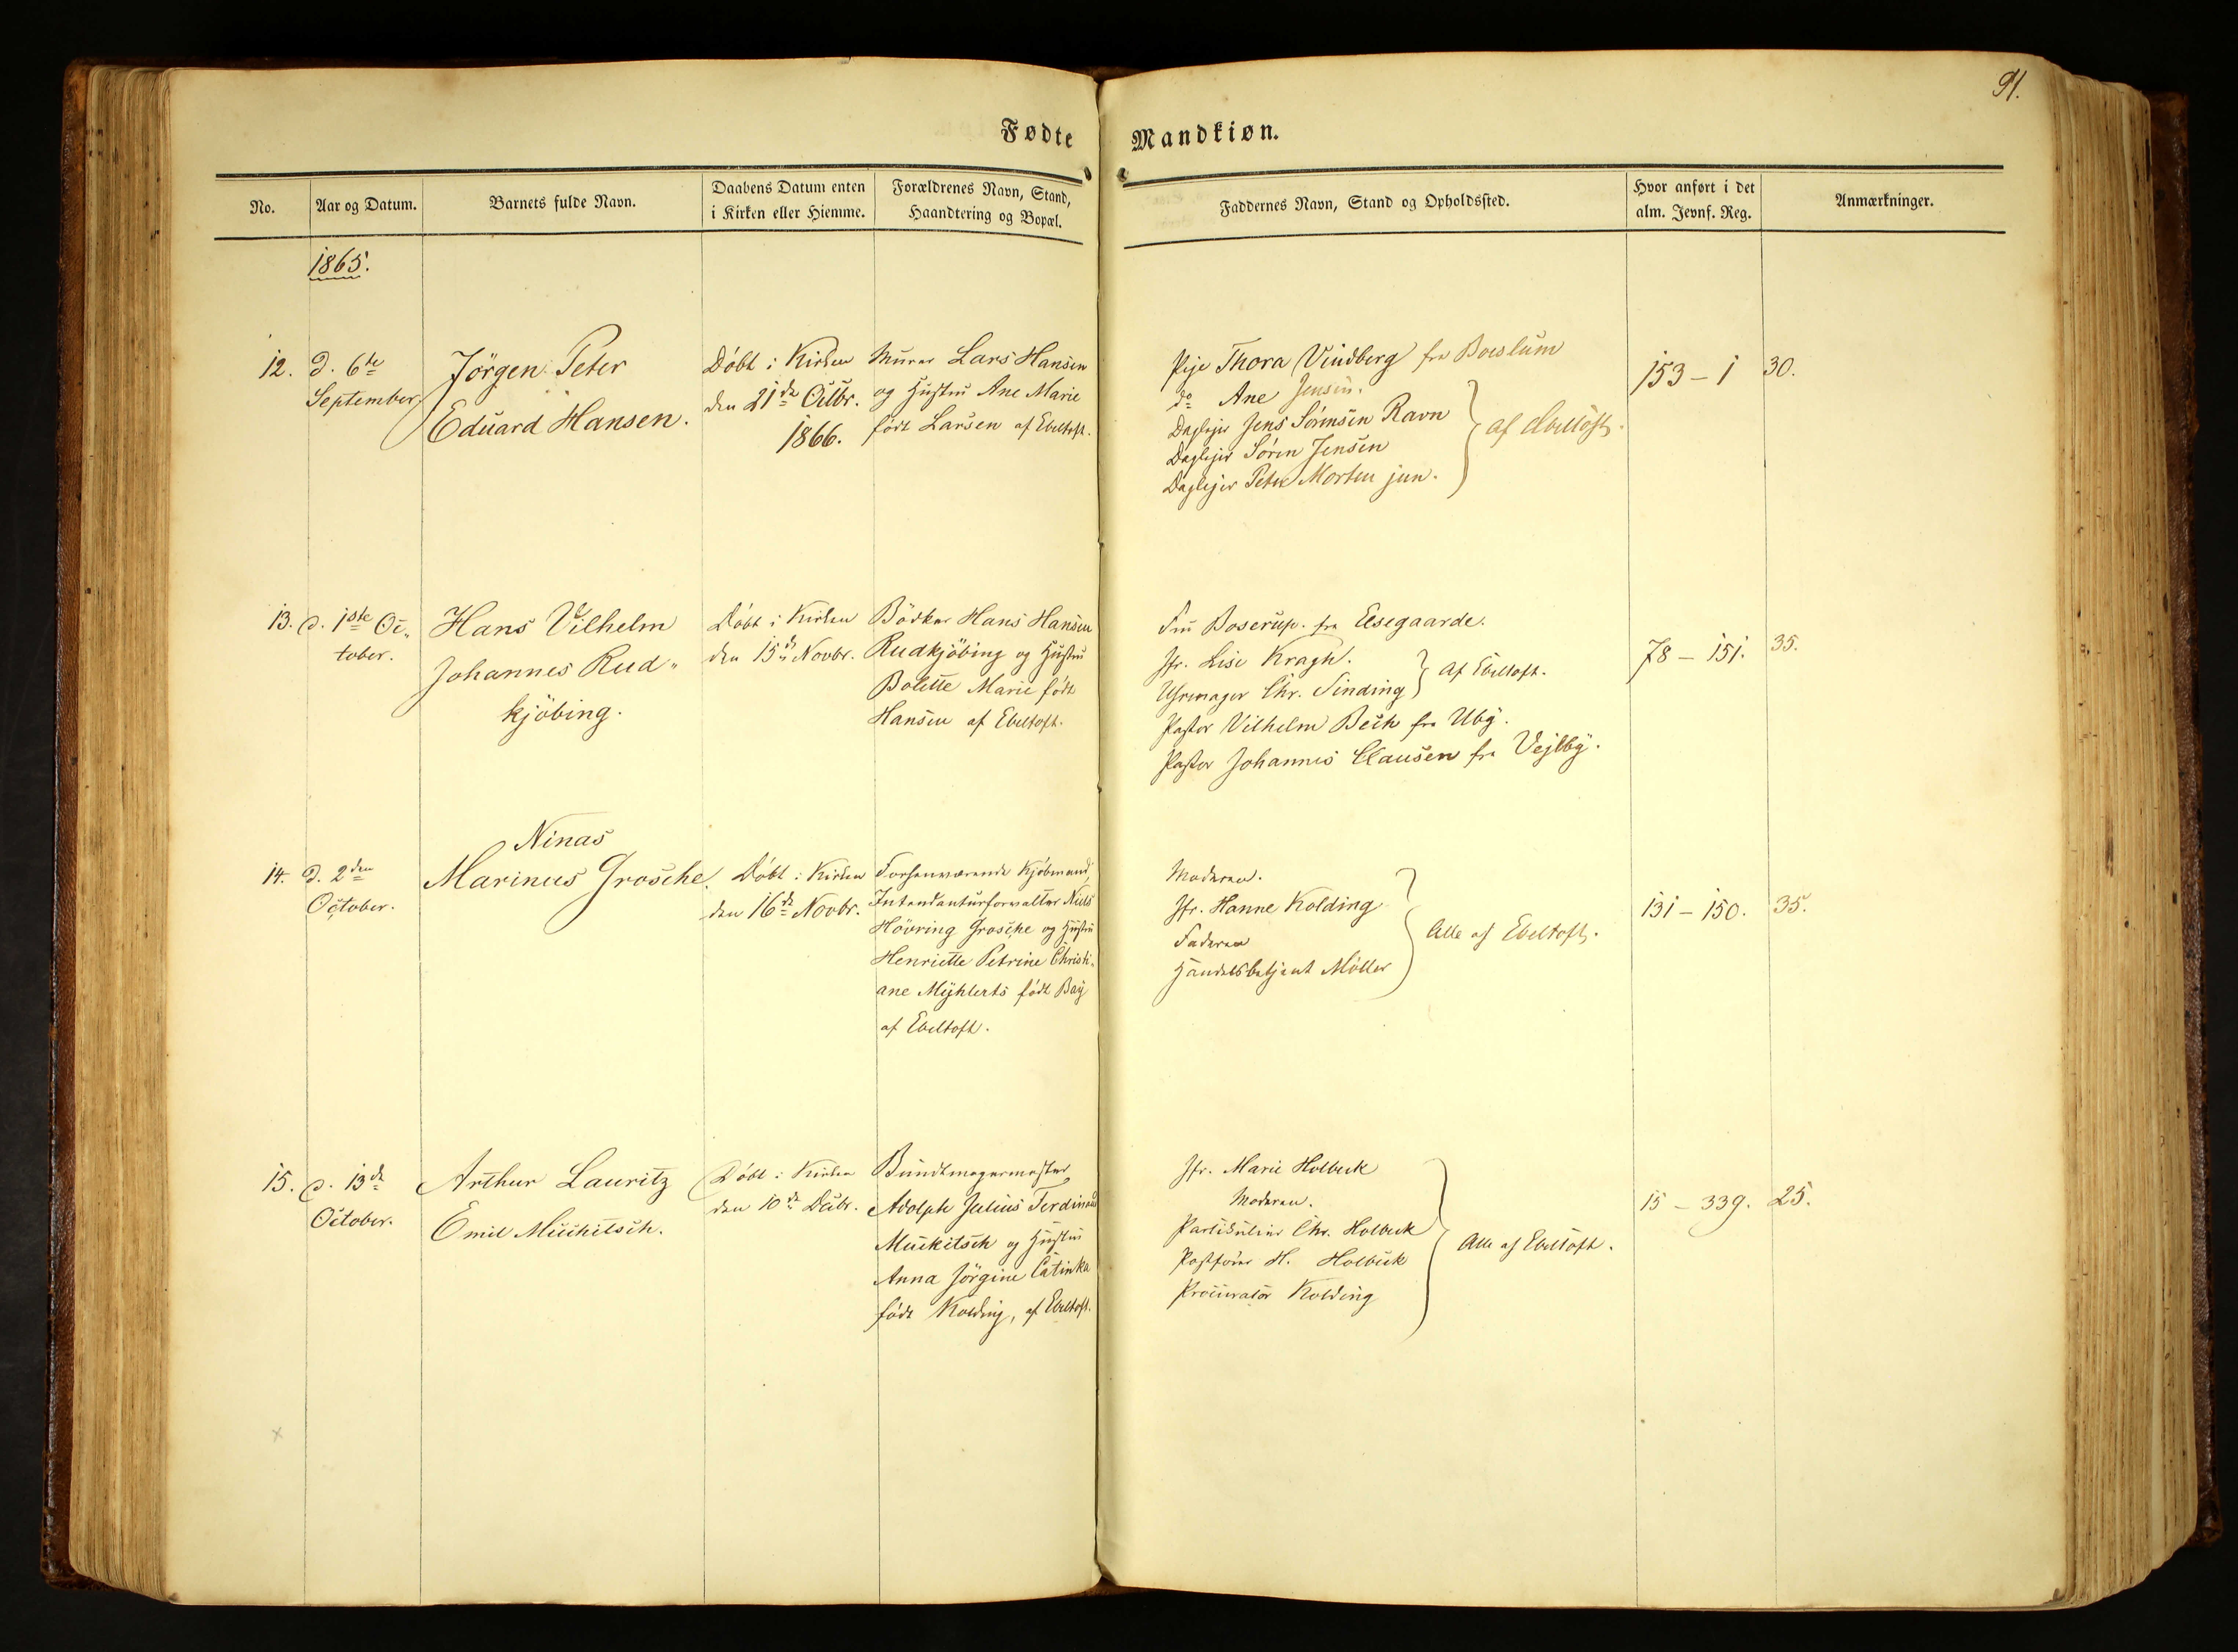 91.
Fødte Mandkiøn.
No.
Aar og Datum.
Barnets fulde Navn.
Daabens Datum enten
i Kirken eller Hiemme.
Forældrenes Navn, Stand,
Haandtering og Bopæl.
Faddernes Navn, Stand og Opholdssted.
Hvor anført i det
alm. Jevnf. Reg.
Anmærkninger.
1865.
12.
d. 6te
September
Jörgen Peter
Eduard Hansen.
Döbt i Kirken
den 21de Octbr.
1866.
Murer Lars Hansen
og Hustru Ane Marie
født Larsen af Ebeltoft.
Pige Thora Vindberg fra Boeslum
do Ane Jensen.
Daglejer Jens Sörensen Ravn
Daglejer Sören Jensen
Daglejer Peter Morten jun.
af Ebeltoft.
153 - 1
30.
13.
d. 1ste Oc„
tober.
Hans Vilhelm
Johannes Rud„
kjöbing.
Döbt i Kirken
den 15de Novbr.
Bödker Hans Hansen
Rudkjöbing og Hustru
Bolette Marie født
Hansen af Ebeltoft.
Fru Boserup. fra Elsegaarde.
Jfr. Lise Kragh.
Uhrmager Chr. Sinding
af Ebeltoft.
Pastor Vilhelm Beck fra Uby.
Pastor Johannes Clausen fra Vejlby.
78 - 151.
35.
14.
d. 2den
October.
Ninas
Marinus Grosche.
Döbt i Kirken
den 16de Novbr.
Forhenværende Kjöbmand,
Intendanturforvalter Niels
Hövring Grosche og Hustru
Henriette Petrine Christi„
ane Myhlertz født Bay
af Ebeltoft.
Moderen.
Jfr. Hanne Kolding
Faderen
Handelsbetjent Möller
Alle af Ebeltoft.
131 - 150.
35.
15.
d. 13de
October.
Arthur Lauritz
Emil Muckitsch.
Döbt i Kirken
den 10de Decbr.
Bundtmagermester
Adolph Julius Ferdinand
Muckitsch og Hustru
Anna Jörgine Catinka
født Kolding, af Ebeltoft.
Jfr. Marie Holbeck
Moderen.
Partikulier Chr. Holbeck
Postförer H. Holbeck
Procurator Kolding
Alle af Ebeltoft.
15 - 339.
25.